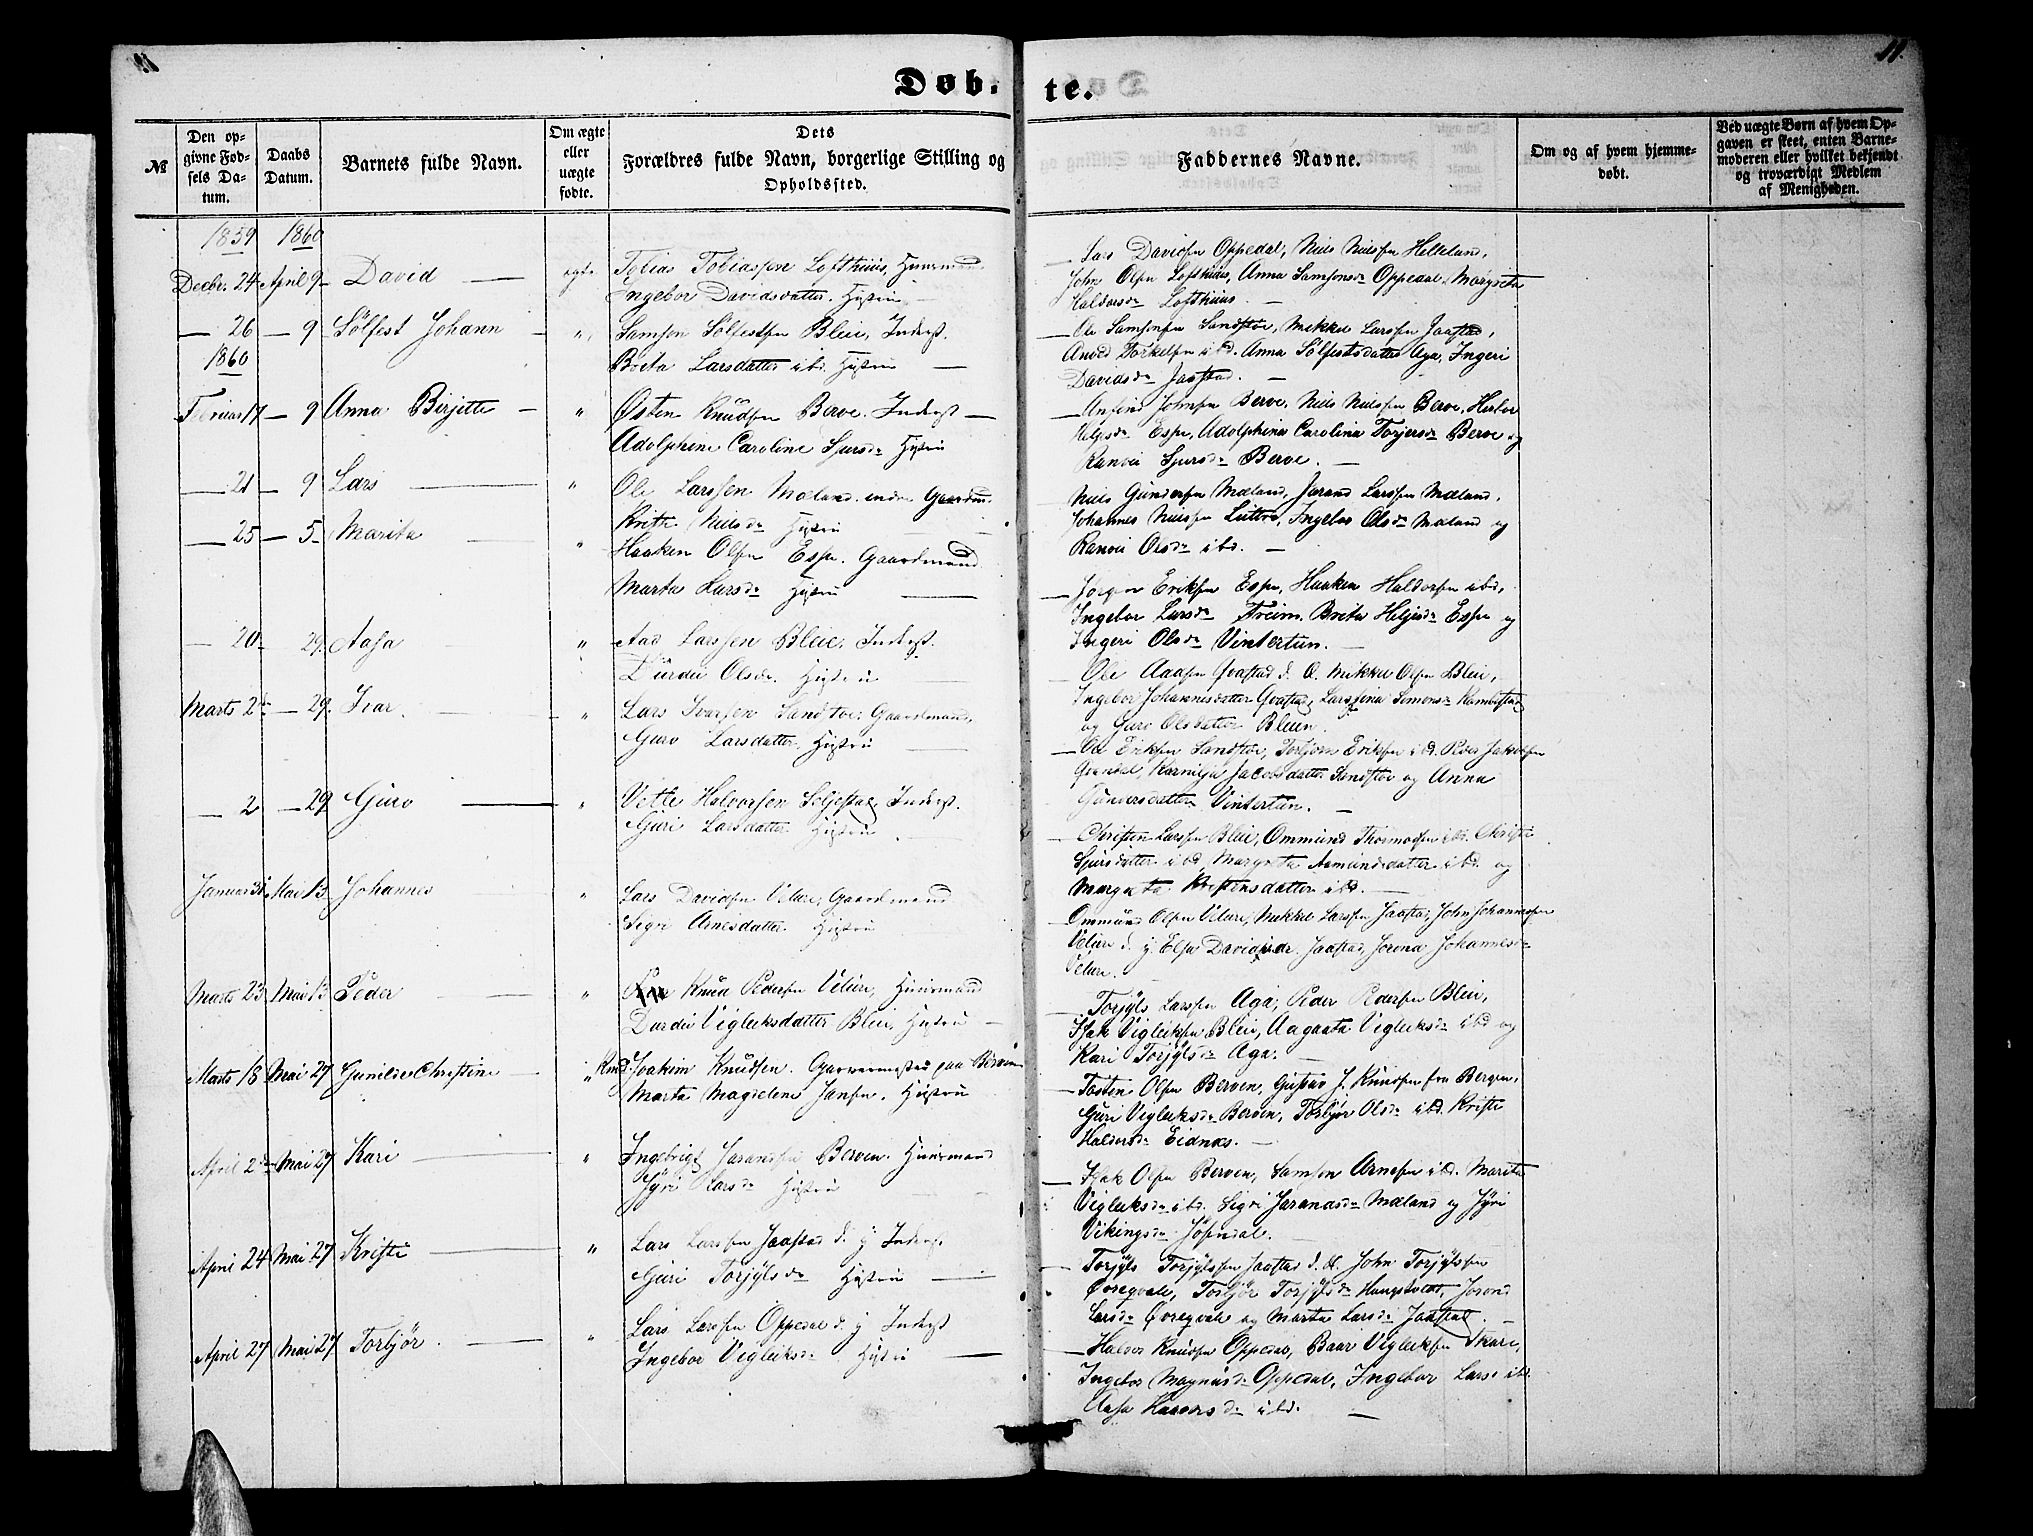 11.
Døb. te.
№
Den op-
givne Fød-
sels Da-
tum.
Daabs
Datum.
Barnets fulde Navn.
Om ægte
eller
uægte
fødte.
Dets
Forældres fulde Navn, borgerlige Stilling og
Opholdssted.
Faddernes Navne.
Om og af hvem hjemme-
døbt.
Ved uægte Børn af hvem Op-
gaven er skeet, enten Barne-
moderen eller hvilket bekjendt
og troværdigt Medlem
af Menigheden.
1859 1860
Decbr. 24 April 9 David — ægte Tobias Tobiassen Lofthuus, Huusmand
Ingebor Davidsdatter. Hustru
Lars Davidsen Oppedal, Niels Nielsen Helleland,
John Olsen Lofthuus, Anna Samsonsdr Oppedal, Margreta
Haldorsdr Lofthuus. —
— 26 — 9 Sölfest Johann — " Samson Sölfestsen Bleie, Inderst.
1860
Brita Larsdatter ibd. Hustru —
— Ole Samsonsen Sandstöe, Mikkel Larssen Jaastad,
Torkelsen ibd. Anna Sölfestsdatter Aga, Ingeri
Davidsdr Jaastad. —
Februar 17 — 9 Anna Birjitte — " Østen Knudsen Berve. Inderst —
Adolphine Caroline Sjursdr Hustru
— Anfind Johnsen Berve, Niels Nielsen Berve, Herbor
Heljesdr Espe, Adolphina Carolina Torjersdr Berve og
Ranvei Sjursdr Berve. —
— 21 — 9 Lars — " Ole Larssen Mæland indre Gaardm.
Kristi Nielsdr Hustru
Niels Gundersen Mæland, Jarand Larssen Mæland,
Johannes Nielsen Lutteo, Ingebor Olsdr Mæland og
Ranvei Olsdr ibd. —
— 25 — 5 Marita — " Haaken Olsen Espe. Gaardmand
Marta Larsdr Hustru —
— Eriksen Espe, Haaken Haldorsen ibd,
Ingebor Larsdr Freim, Brita Heljesdr Espe og
Ingeri Olsdr Vintertun. —
— 20 — 29. Aasa " Aad Larssen Bleie, Inderst.
Durdei Olsdr. Hustru —
Ole Aasen Jaastad d. Æ. Mikkel Olsen Bleie,
Ingebor Johannesdatter Qvæstad, Larssina Simonsdr Kambestad
og Guro Olsdatter Bleien. —
Marts 2den — 29. Ivar. — " Lars Ivarsen Sandtöe, Gaardmand,
Guro Larsdatter. Hustru —
— Ole Eriksen Sandstöe, Torbjorn Eriksen ibd. Peder Jakobsen
Karnilja Jacobsdatter Sandstöe og Anna
Gundersdatter Vintertun. —
— 2 — 29 Guro — " Vetle Halvorsen Seljestad, Inderst.
Guri Larsdatter. Hustru —
— Christen Larssen Bleie, Ommund Thormodsen ibd. Christi
Sjursdatter ibd. Margreta Aamundsdatter ibd. og
Margreta Kristensdatter ibd. —
Januar 31 Mai 13 Johannes " Lars Davidsen Velure, Gaardmand
Sigri Arnesdatter. Hustru
Ommund Olsen Velure, Mikkel Larssen Jaastad, John Johannessen
Velure d. y. Elsa Davidsdr Jaastad, Jorona Johannesdr
Velure. —
Marts 23 Mai 13 Peder — " Knud Pedersen Velure, Huusmand
Durdei Vigleiksdatter Bleie, Hustru —
— Torjyls Larssen Aga, Peder Pedersen Bleie,
Isak Vigleiksen Bleie, Aagaata Vigleiksdr ibd og
Kari Torjylsdr Aga. —
Marts 18 Mai 27 Gunilde Christine — " Joakim Knudsen. Garvermester paa Berven
Marta Magdelene Jansen. Hustru
— Tosten Olsen Berven, Gustav J. Knudsen fra Bergen,
Guri Vigleiksdr Berven, Torbjør Olsdr ibd. Kristi
Haldorsdr Eidnes. —
April 2den Mai 27 Kari — " Ingebrigt Jarandsen Berven. Huusmand
Jyri Larsdr Hustru —
— Isak Olsen Berven, Samson Arnesen ibd. Marita
Vigleiksdr ibd. Sigri Jarandsdr Mæland og Jyri
Vikingsdr Jösendal. —
April 24 Mai 27 Kristi — " Lars Larssen Jaastad d. y. Inderst
Guri Torjylsdr Hustru —
— Torjyls Torjylssen Jaastad d. Æ. John Torjylssen
Övregvale, Torbjör Torjylsdr Haugstvedt, Jorond
Larsdr Övregvale og Marta Larsdr Jaastad. —
April 27 Mai 27 Torbjør. — " Lars Larssen Oppedal d. y. Inderst
Ingebor Vigleiksdr Hustru —
— Halvor Knudsen Oppedal, Baar Vigleiksen Skare,
Ingebor Magnusdr Oppedal, Ingebor Larsdr ibd.
Aasa ibd. —